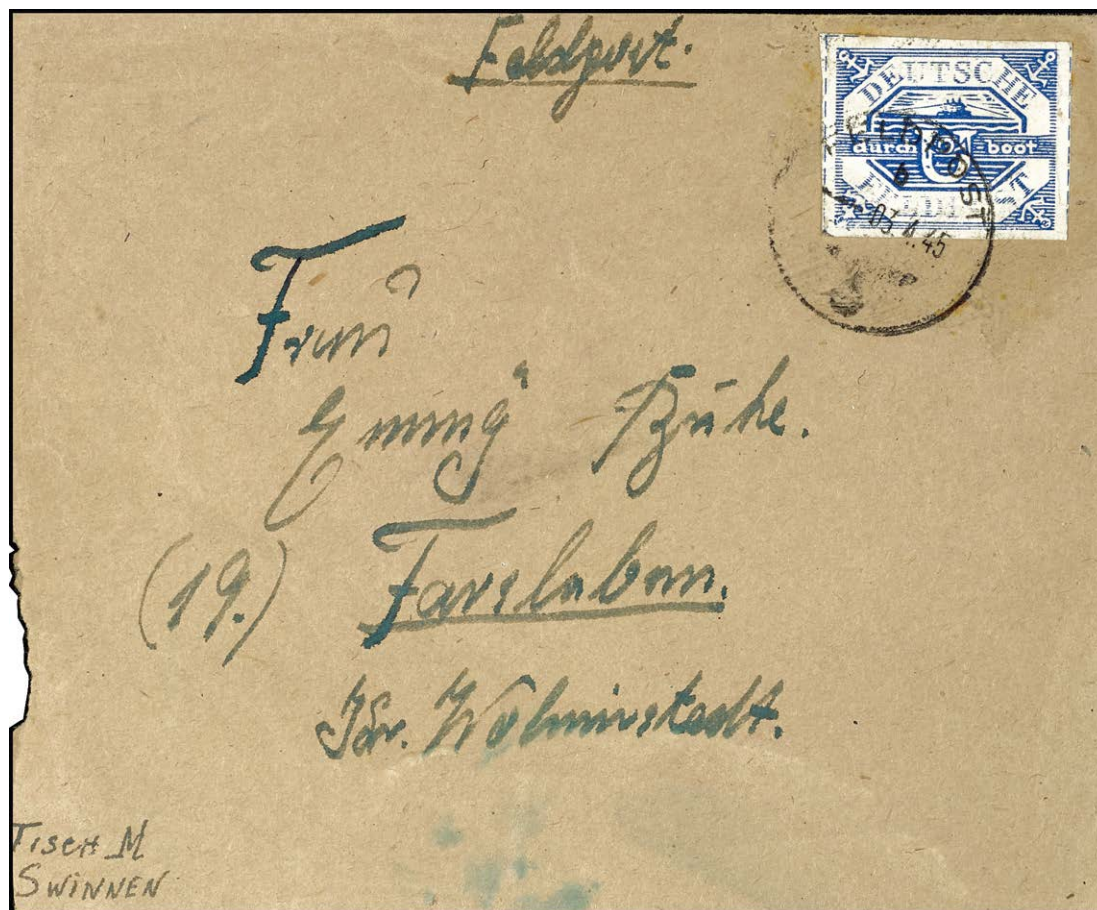 Feldpost.
DEUTSCHE
durch U boot
FELDPOST
FELDPOST
b
03.4.45
Frau
Emmy Bühe.
(19.) Farsleben.
Kr. Wolmirstedt.
TISCH M
SWINNEN